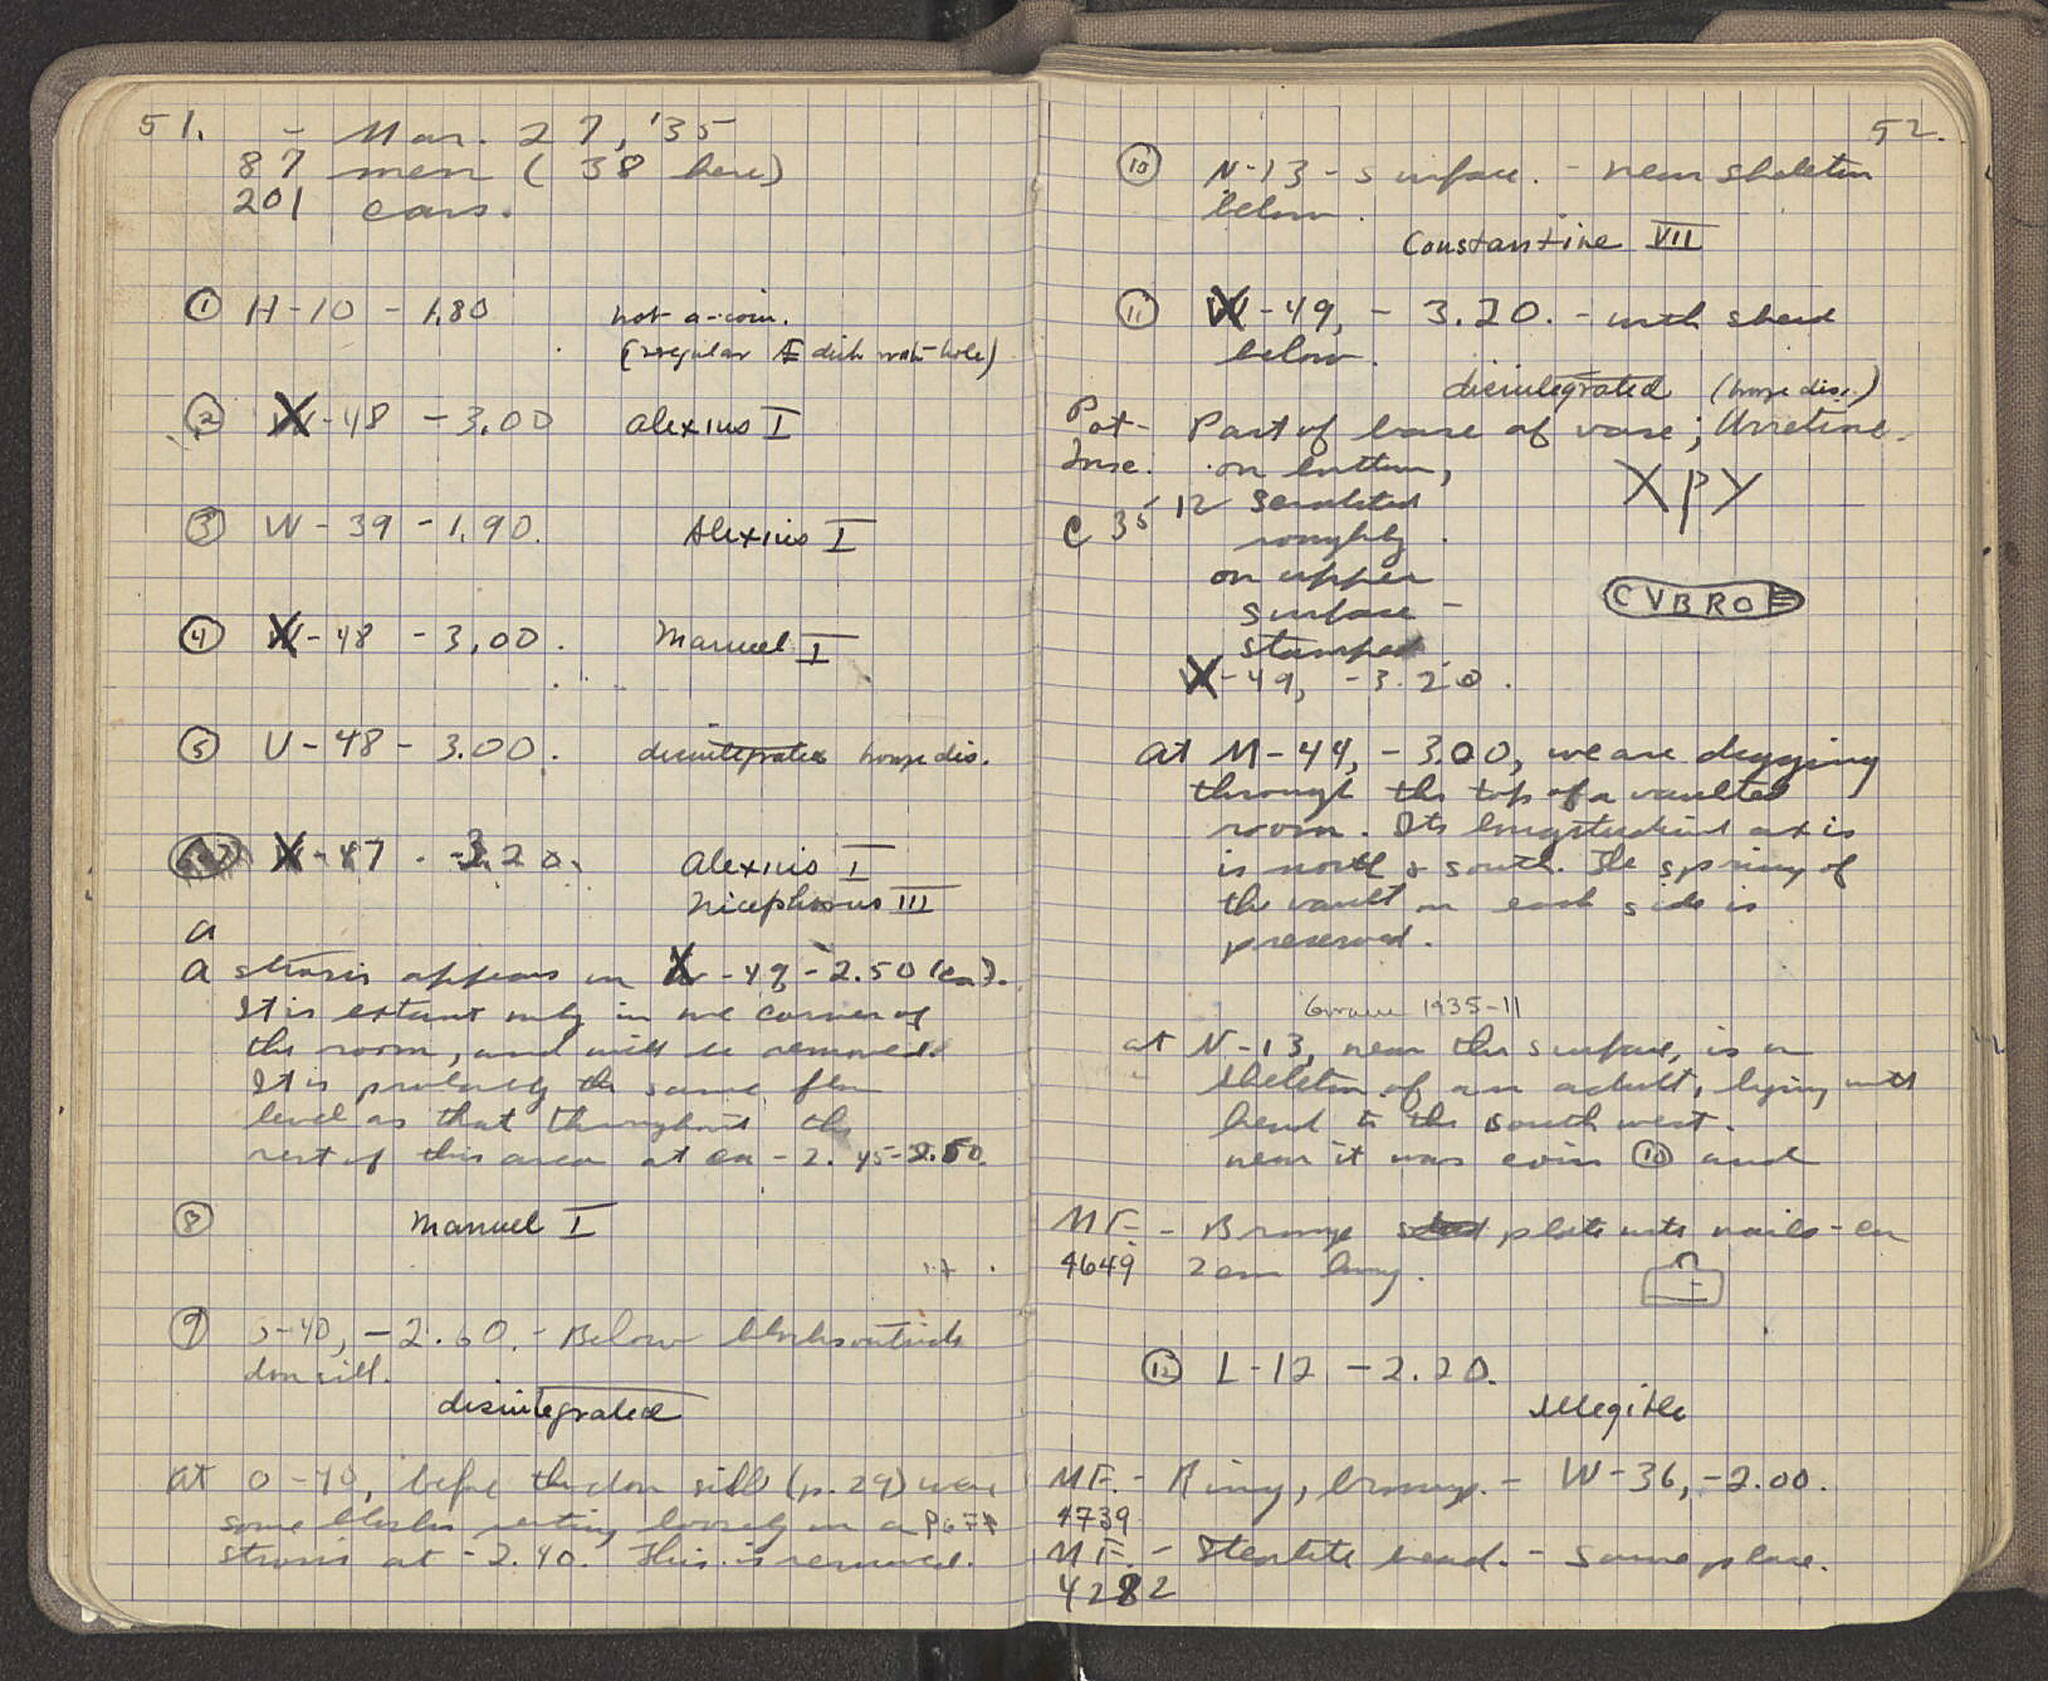 51. - Mar. 27, '35
87 men (38 here)
201 cars.
① H-10 - 1.80 not a coin.
(irregular Æ disk with hole)
② X-48 - 3.00 Alexius I
③ W-39 - 1.90. Alexius I
④ X-48 - 3.00. Manuel I
⑤ U-48 - 3.00. disintegrated bronze dis.
X-47 - -3.20. Alexius I
Nicephorus III
a
A strosis appears in X-49 - 2.50 (ca).
It is extant only in one corner of
the room, and will be removed.
It is probably the same floor
level as that throughout the
rest of this area at ca - 2.45-2.50.
⑧ Manuel I
⑨ S-40, -2.60. - Below blocks outside
door sill.
disintegrated
At O-40, before the door sill (p. 29) were
some blocks resting loosely on a
strosis at -2.40. This is removed.
52.
⑩ N-13 - surface. - near skeleton
below.
Constantine VII
⑪ X-49, - 3.20. - with sherd
below.
disintegrated (bronze disc.)
Pot- Part of base of vase; Arretine.
Insc. on bottom, ΧΡΥ
C 35 12 scratched
roughly.
on upper
surface - CVBRO
stamped
X-49, -3.20.
At M-44, -3.00, we are digging
through the top of a vaulted
room. Its longitudinal axis
is north & south. The spring of
the vault on each side is
preserved.
Grave 1935-11
At N-13, near the surface, is a
skeleton of an adult, lying with
head to the south west.
Near it was coin ⑩ and
MF. - Bronze plate with nails - ca
4649 2 cm long.
⑫ L-12 - 2.20.
illegible
MF. - Ring, bronze. - W-36, -2.00.
4739
MF. - Steatite bead. - Same place.
4282